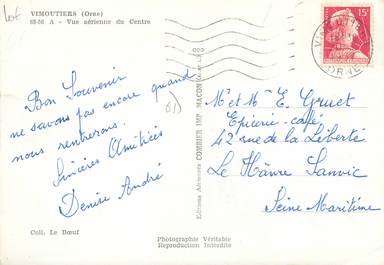 VIMOUTIERS (Orne)
A - Vue aérienne du Centre
Bon Souvenir
ne savons pas encore quand
nous rentrerons.
Sincères Amitiés
Denise André
Coll. Le Bœuf
Editions Aériennes COMBIER IMP. MACON
15F
ORNE
M et Mme E. Gruet
Epicerie-café
42 rue de la Liberté
Le Hâvre Sanvic
Seine Maritime
Photographie Véritable
Reproduction Interdite